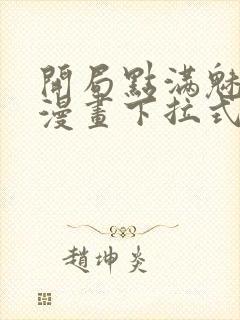 開局點滿魅
漫畫下拉式
趙坤炎